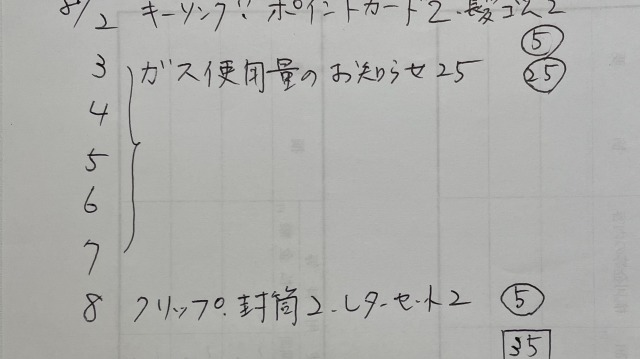 8/2 キーリング1. ポイントカード2. 髪ゴム2
⑤
3 ガス使用量のお知らせ25 ㉕
4
5
6
7
8 クリップ. 封筒2. レターセット2 ⑤
35